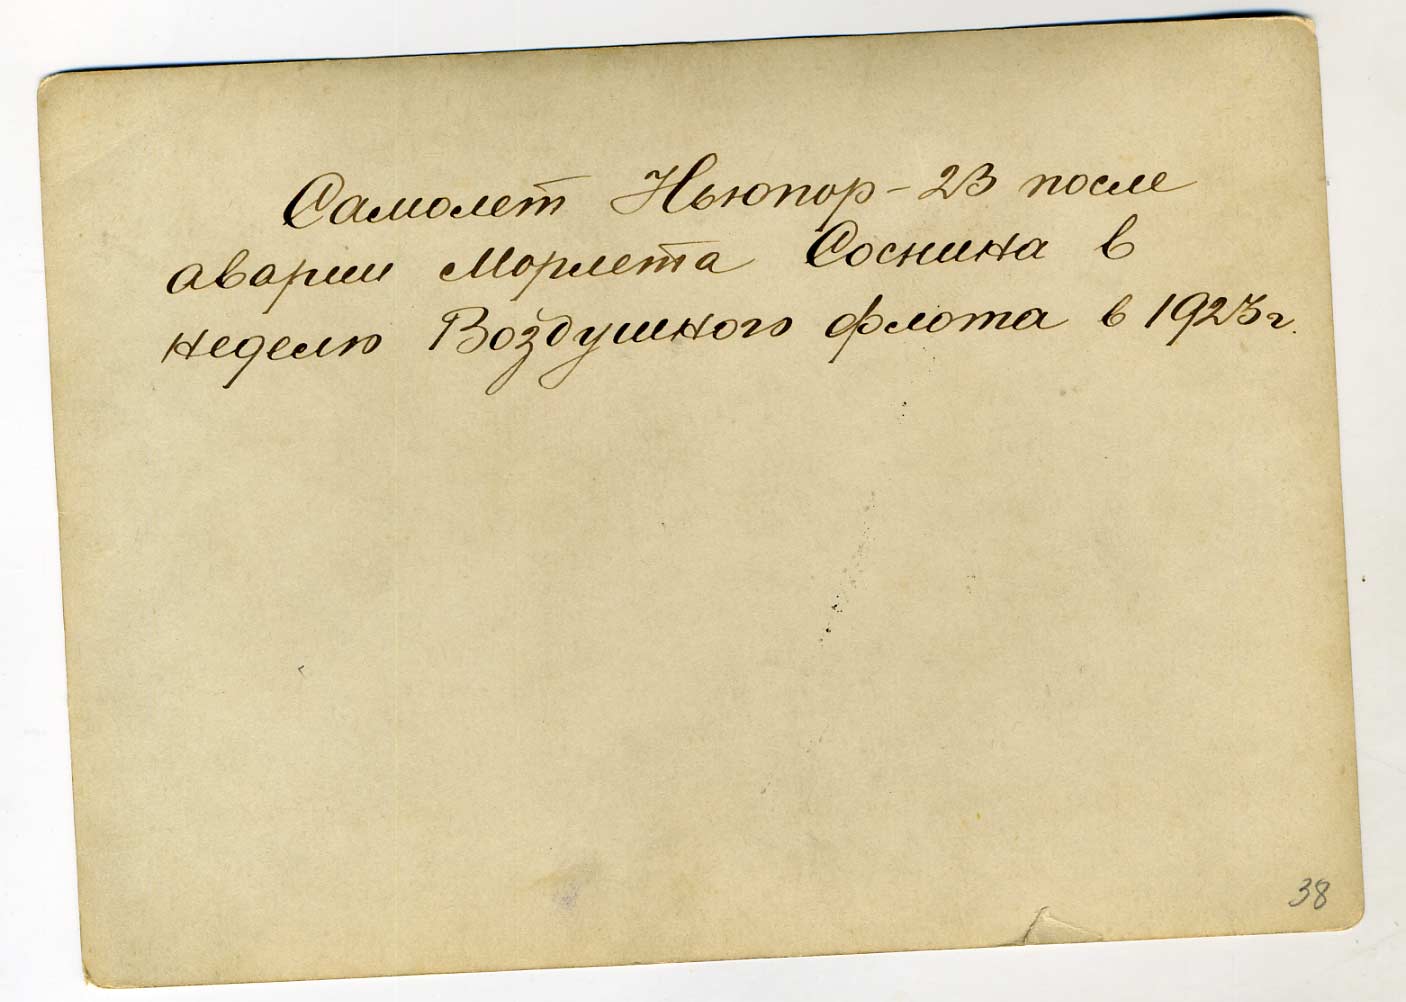 Самолет Ньюпор-23 после
аварии Морлета Соснина в
неделю Воздушного флота в 1923 г.
38